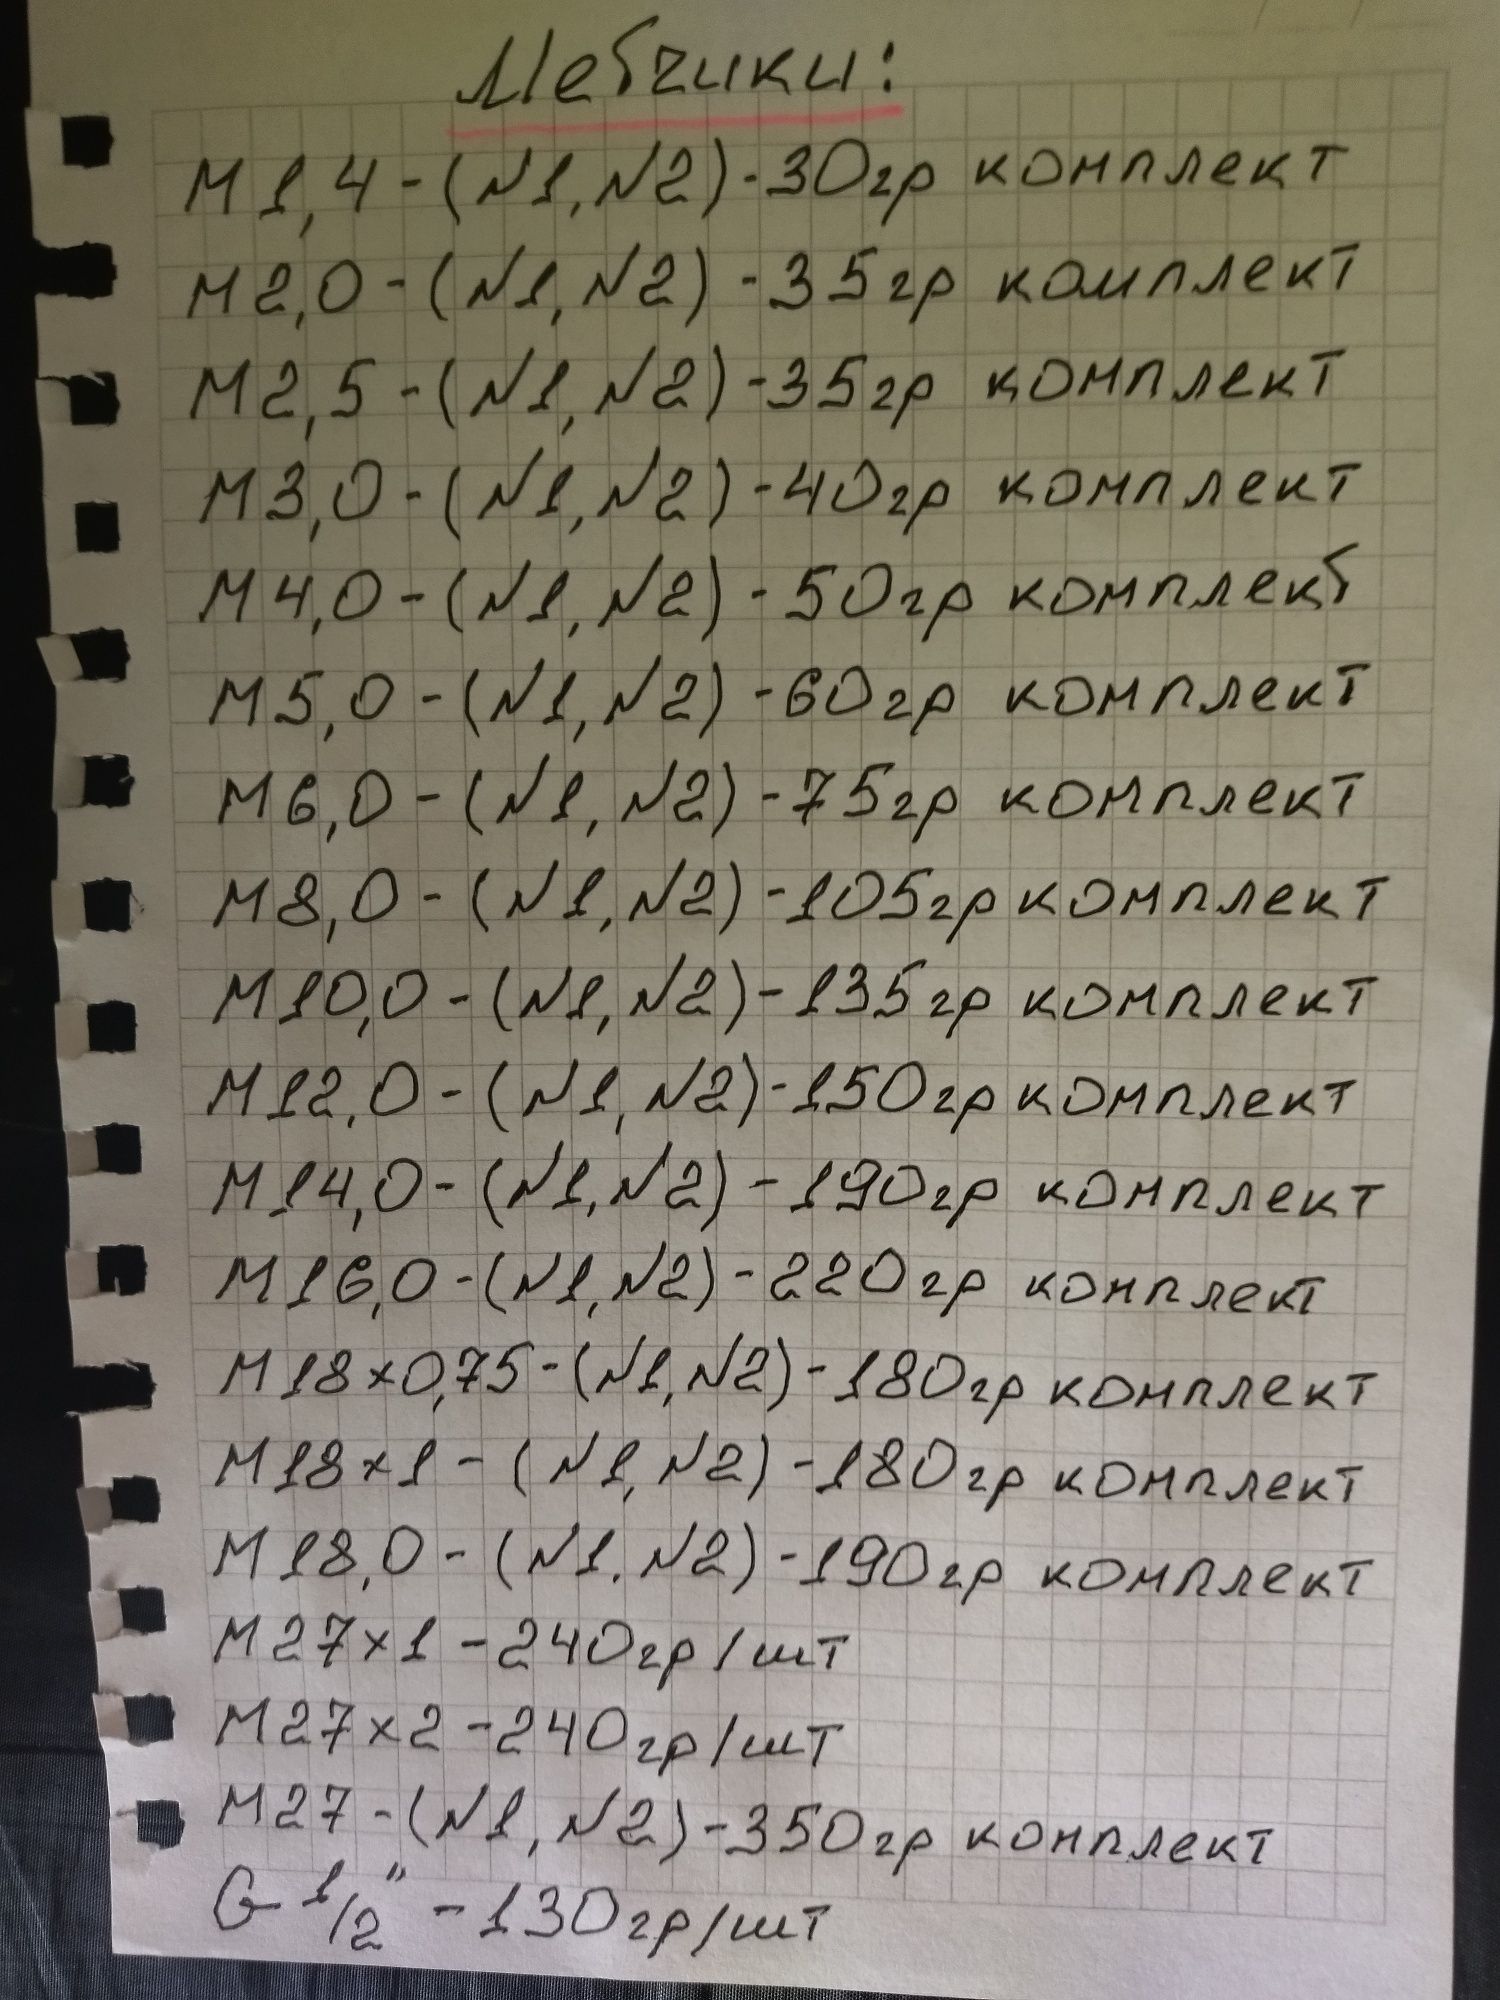 Мебчики:
М1,4-(N1,N2)-30гр комплект
М2,0-(N1,N2)-35гр комплект
М2,5-(N1,N2)-35гр комплект
М3,0-(N1,N2)-40гр комплект
М4,0-(N1,N2)-50гр комплект
М5,0-(N1,N2)-60гр комплект
М6,0-(N1,N2)-75гр комплект
М8,0-(N1,N2)-105гр комплект
М10,0-(N1,N2)-135гр комплект
М12,0-(N1,N2)-150гр комплект
М14,0-(N1,N2)-190гр комплект
М16,0-(N1,N2)-220гр комплект
М18×0,75-(N1,N2)-180гр комплект
М18×1-(N1,N2)-180гр комплект
М18,0-(N1.N2)-190гр комплект
М27×1-240гр/шт
М27×2-240гр/шт
М27-(N1,N2)-350гр комплект
G 1/2"-130гр/шт